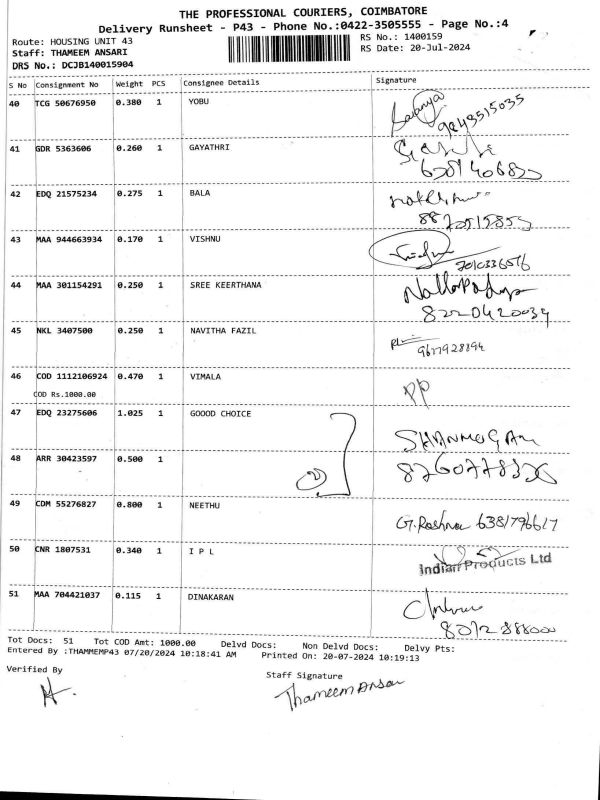 THE PROFESSIONAL COURIERS, COIMBATORE
Delivery Runsheet - P43 - Phone No.:0422-3505555 - Page No.:4
Route: HOUSING UNIT 43
Staff: THAMEEM ANSARI
DRS No.: DCJB140015904
RS No.: 1400159
RS Date: 20-Jul-2024
S No Consignment No Weight PCS Consignee Details Signature
40 TCG 50676950 0.380 1 YOBU Saranya
9843515035
41 GDR 5363606 0.260 1 GAYATHRI
42 EDQ 21575234 0.275 1 BALA
43 MAA 944663934 0.170 1 VISHNU
44 MAA 301154291 0.250 1 SREE KEERTHANA
8220420039
45 NKL 3407500 0.250 1 NAVITHA FAZIL
9677928894
46 COD 1112106924 0.470 1 VIMALA PP
COD Rs.1000.00
47 EDQ 23275606 1.025 1 GOOOD CHOICE SHANMUGAM
48 ARR 30423597 0.500 1
49 CDM 55276827 0.800 1 NEETHU G. Roshna 6381796617
50 CNR 1807531 0.340 1 I P L Indian Products Ltd
51 MAA 704421037 0.115 1 DINAKARAN
Tot Docs: 51 Tot COD Amt: 1000.00 Delvd Docs: Non Delvd Docs: Delvy Pts:
Entered By :THAMMEMP43 07/20/2024 10:18:41 AM Printed On: 20-07-2024 10:19:13
Verified By
Staff Signature
Thameem Ansari